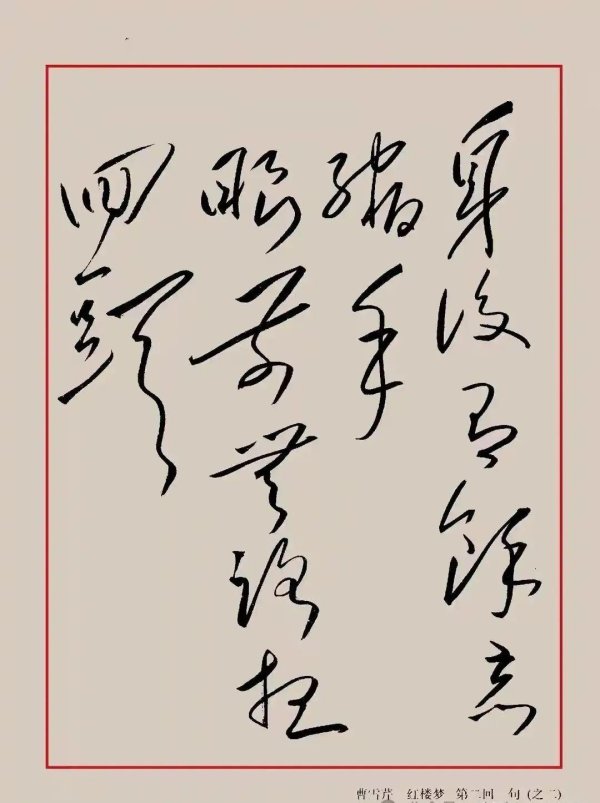 身後有餘忘
縮手
眼前無路想
回頭
曹雪芹 红楼梦 第二回 句 (之二)